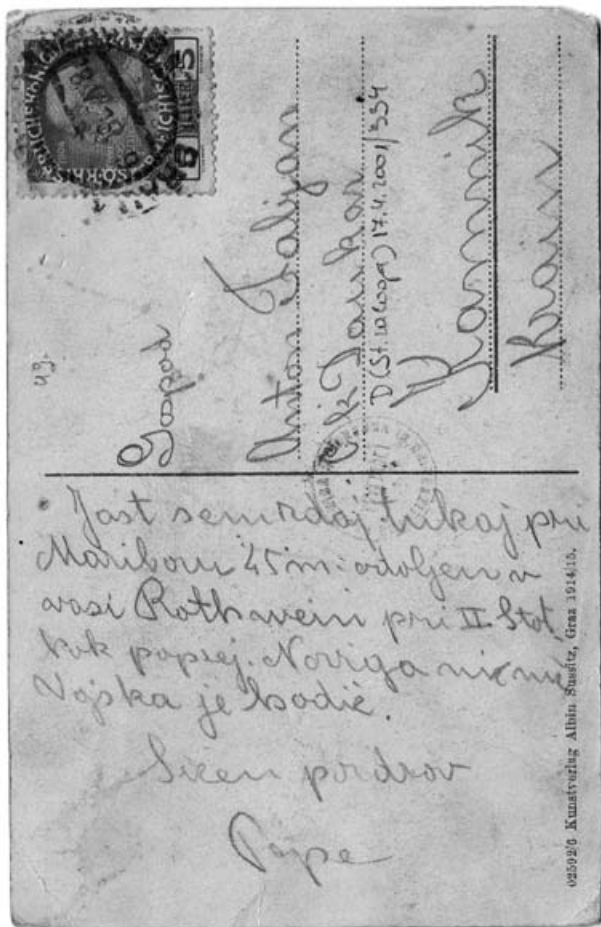 49.
Gospod
Anton
D(St. zaloga) 17.4.2001/354
Kamnik
Krain
5 HELLER 5
Jast sem zdaj tukaj pri
Mariboru 45 m odoljen v
vasi Rothwein pri II. Stot.
kok poprej. Noviga nic ni
Vojska je hodič.
Srčen pozdrov
Pepe
02592/6 Kunstverlag Albin Sussitz, Graz 1914/15.